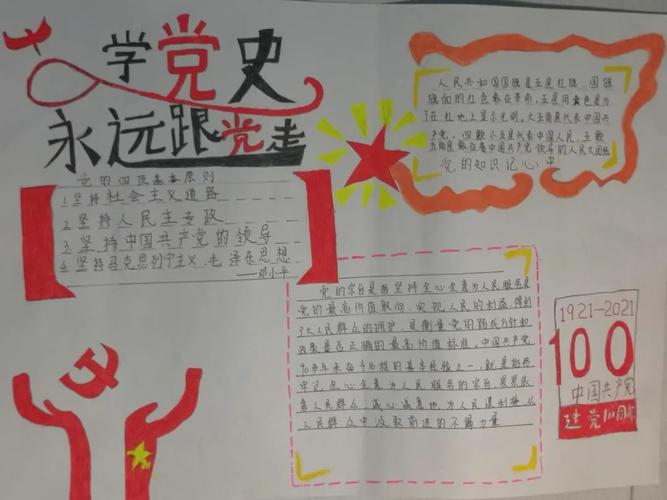 学党史
永远跟党走
党的四项基本原则
1.坚持社会主义道路
2.坚持人民主专政
3.坚持中国共产党的领导
4.坚持马克思列宁主义、毛泽东思想
——邓小平
人民共和国国旗是五星红旗,国旗
旗面的红色象征革命,五星用黄色是为
了在红地上显示光明,大五角星代表中国共
产党,四颗小五星代表中国人民,五颗
五角星象征着中国共产党领导的人民大团结
党的知识记心中
党的宗旨是由坚持全心全意为人民服务是
党的最高价值取向,实现人民的利益,得到
了大人民群众的拥护,是衡量党的路线方针和
政策是否正确的最高价值标准,中国共产党
90多年来奋斗历程的基本经验之一,就是始终
牢记全心全意为人民服务的宗旨,紧紧依
靠人民群众,诚心诚意地,为人民谋利益,从
人民群众中汲取前进的不竭力量
1921-2021
100
中国共产党
建党100周年